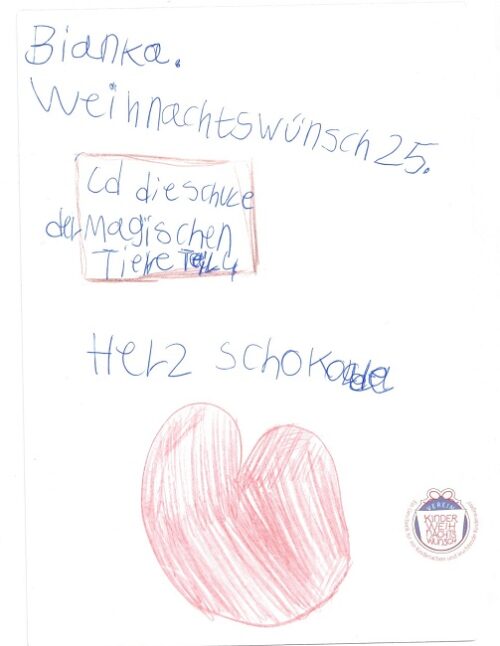 Bianka.
Weihnachtswünsch 25.
Cd die schule
der Magischen
Tiere Teil 4
Herz schokolade
VEREIN
KINDER
WEIH
NACHTS
WUNSCH